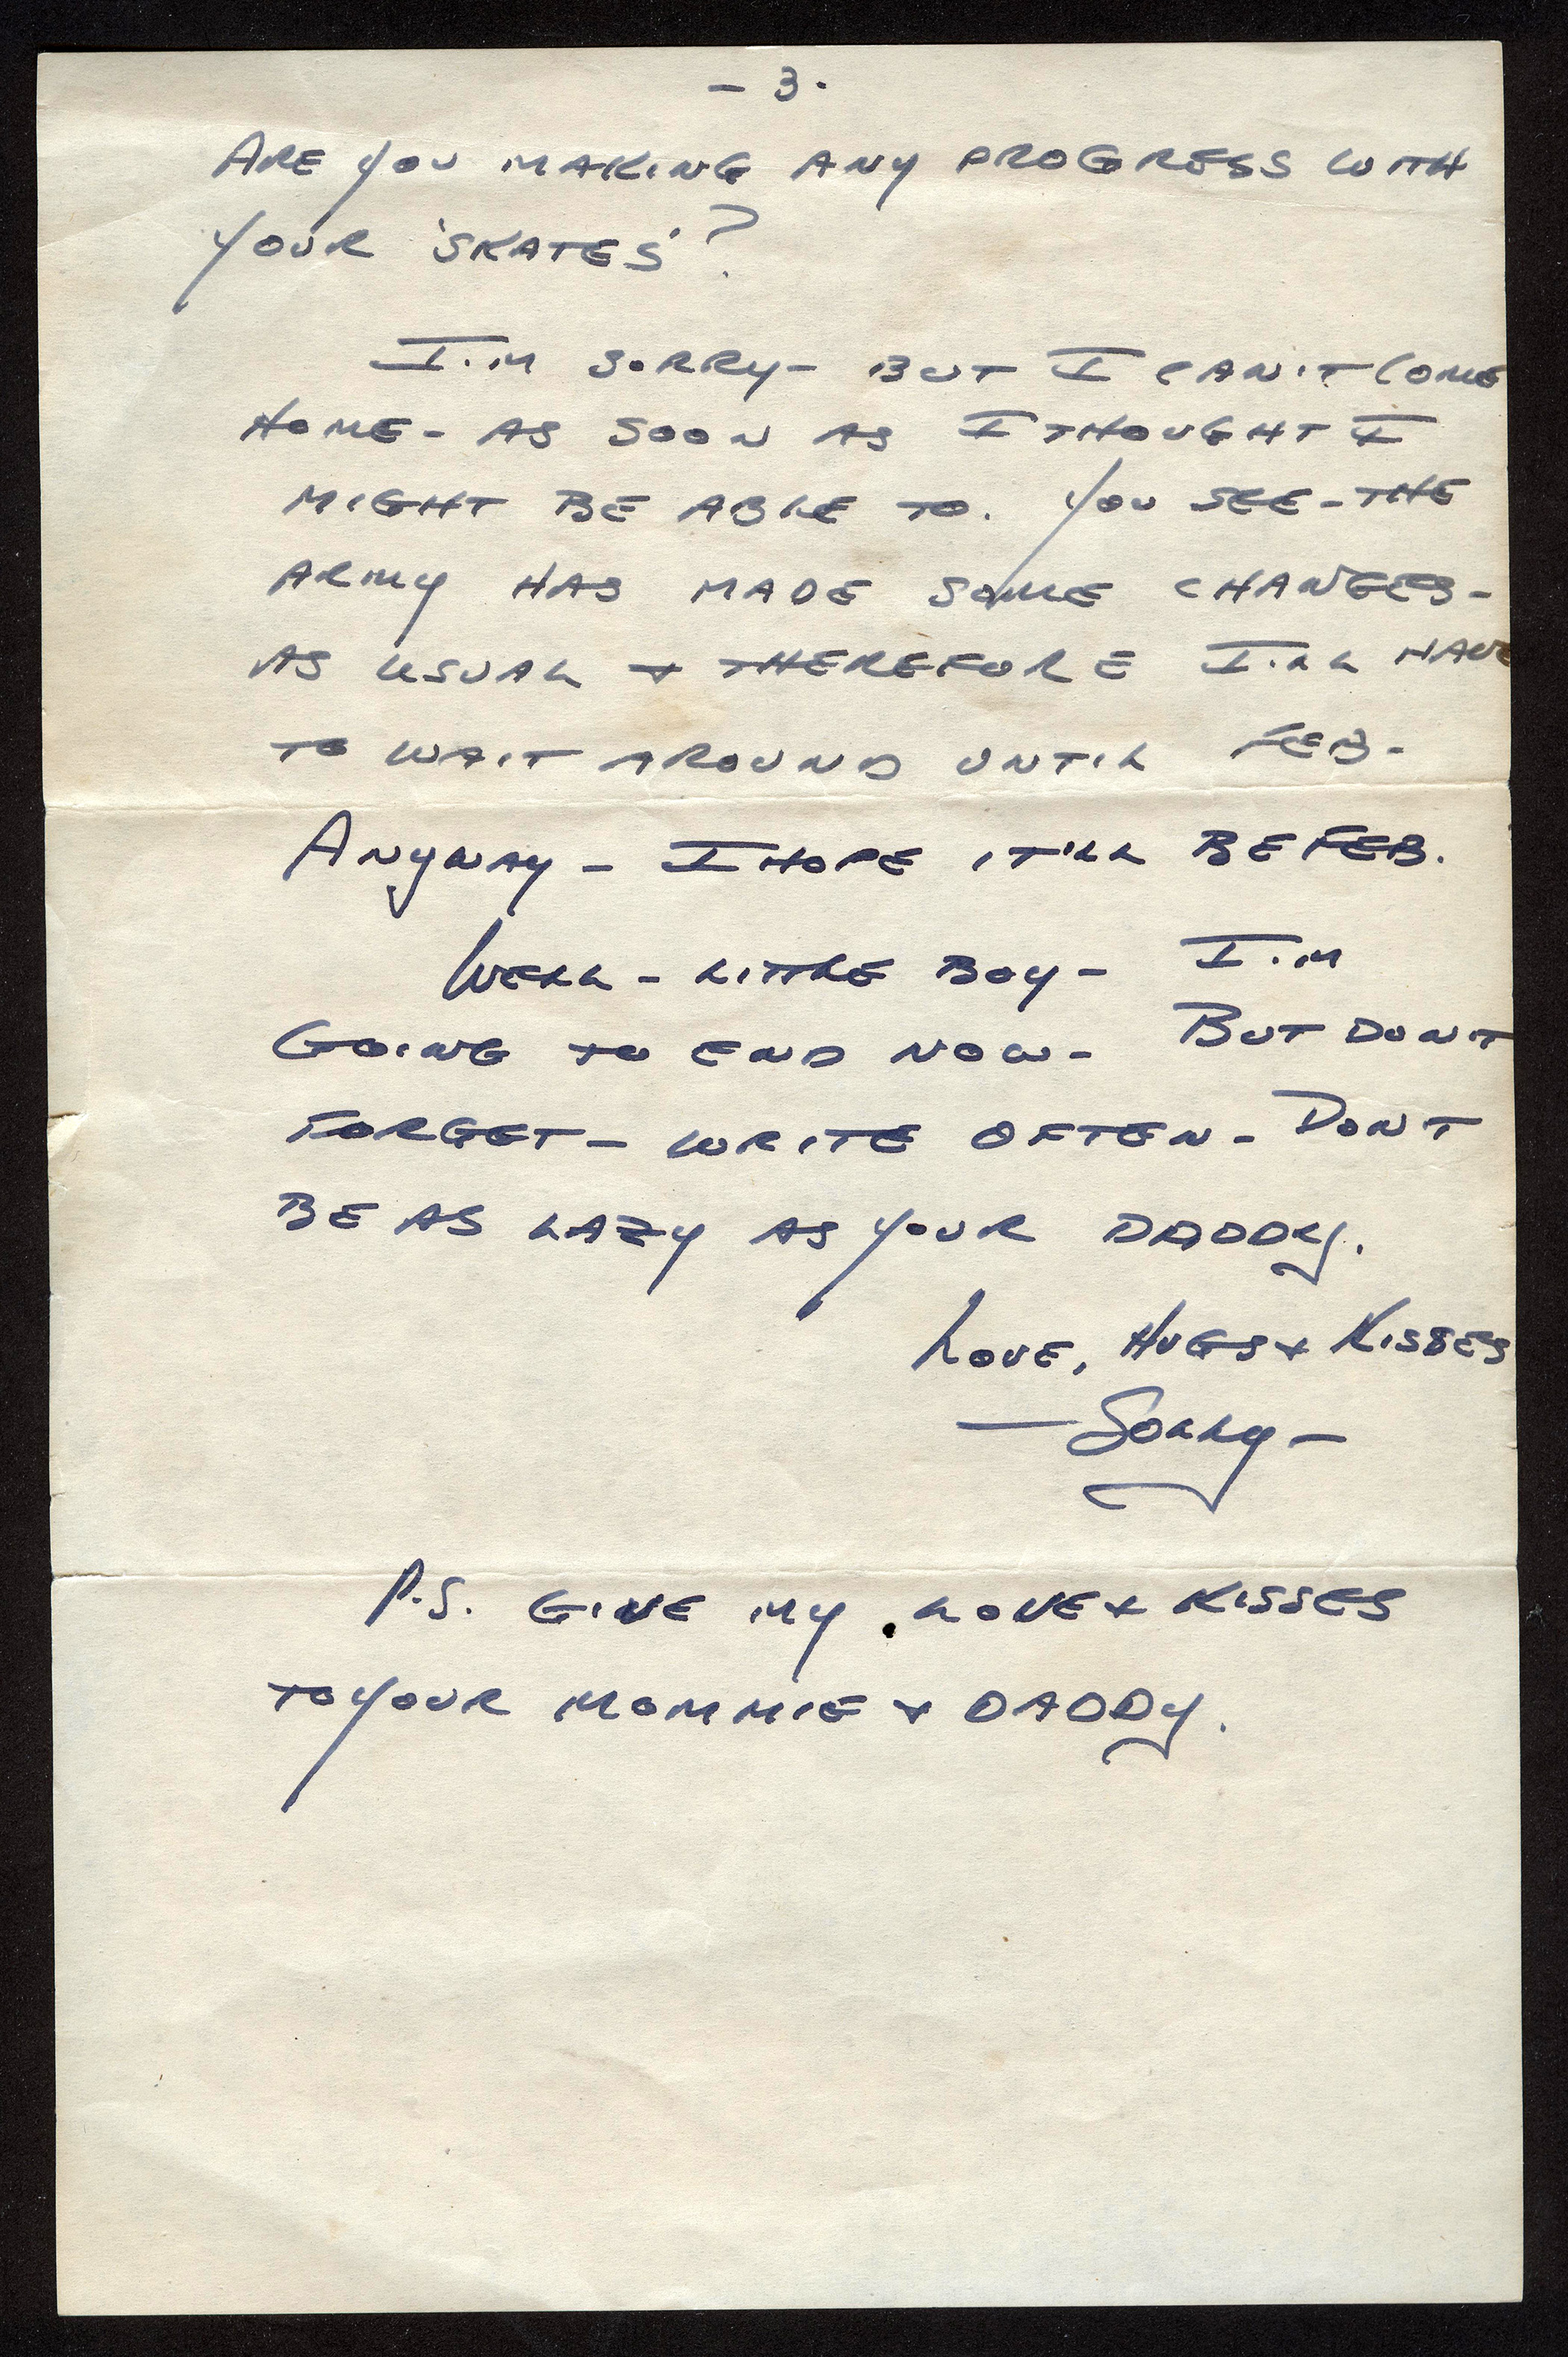 - 3.
ARE YOU MAKING ANY PROGRESS WITH
YOUR 'SKATES'?
I'M SORRY- BUT I CAN'T COME
HOME- AS SOON AS I THOUGHT I
MIGHT BE ABLE TO. YOU SEE-THE
ARMY HAS MADE SOME CHANGES-
AS USUAL & THEREFORE I'LL HAVE
TO WAIT AROUND UNTIL FEB-
ANYWAY- I HOPE IT'LL BE FEB.
WELL- LITTLE BOY- I'M
GOING TO END NOW- BUT DON'T
FORGET- WRITE OFTEN- DON'T
BE AS LAZY AS YOUR DADDY.
LOVE, HUGS & KISSES
- SOLLY -
P.S. GIVE MY LOVE & KISSES
TO YOUR MOMMIE & DADDY.